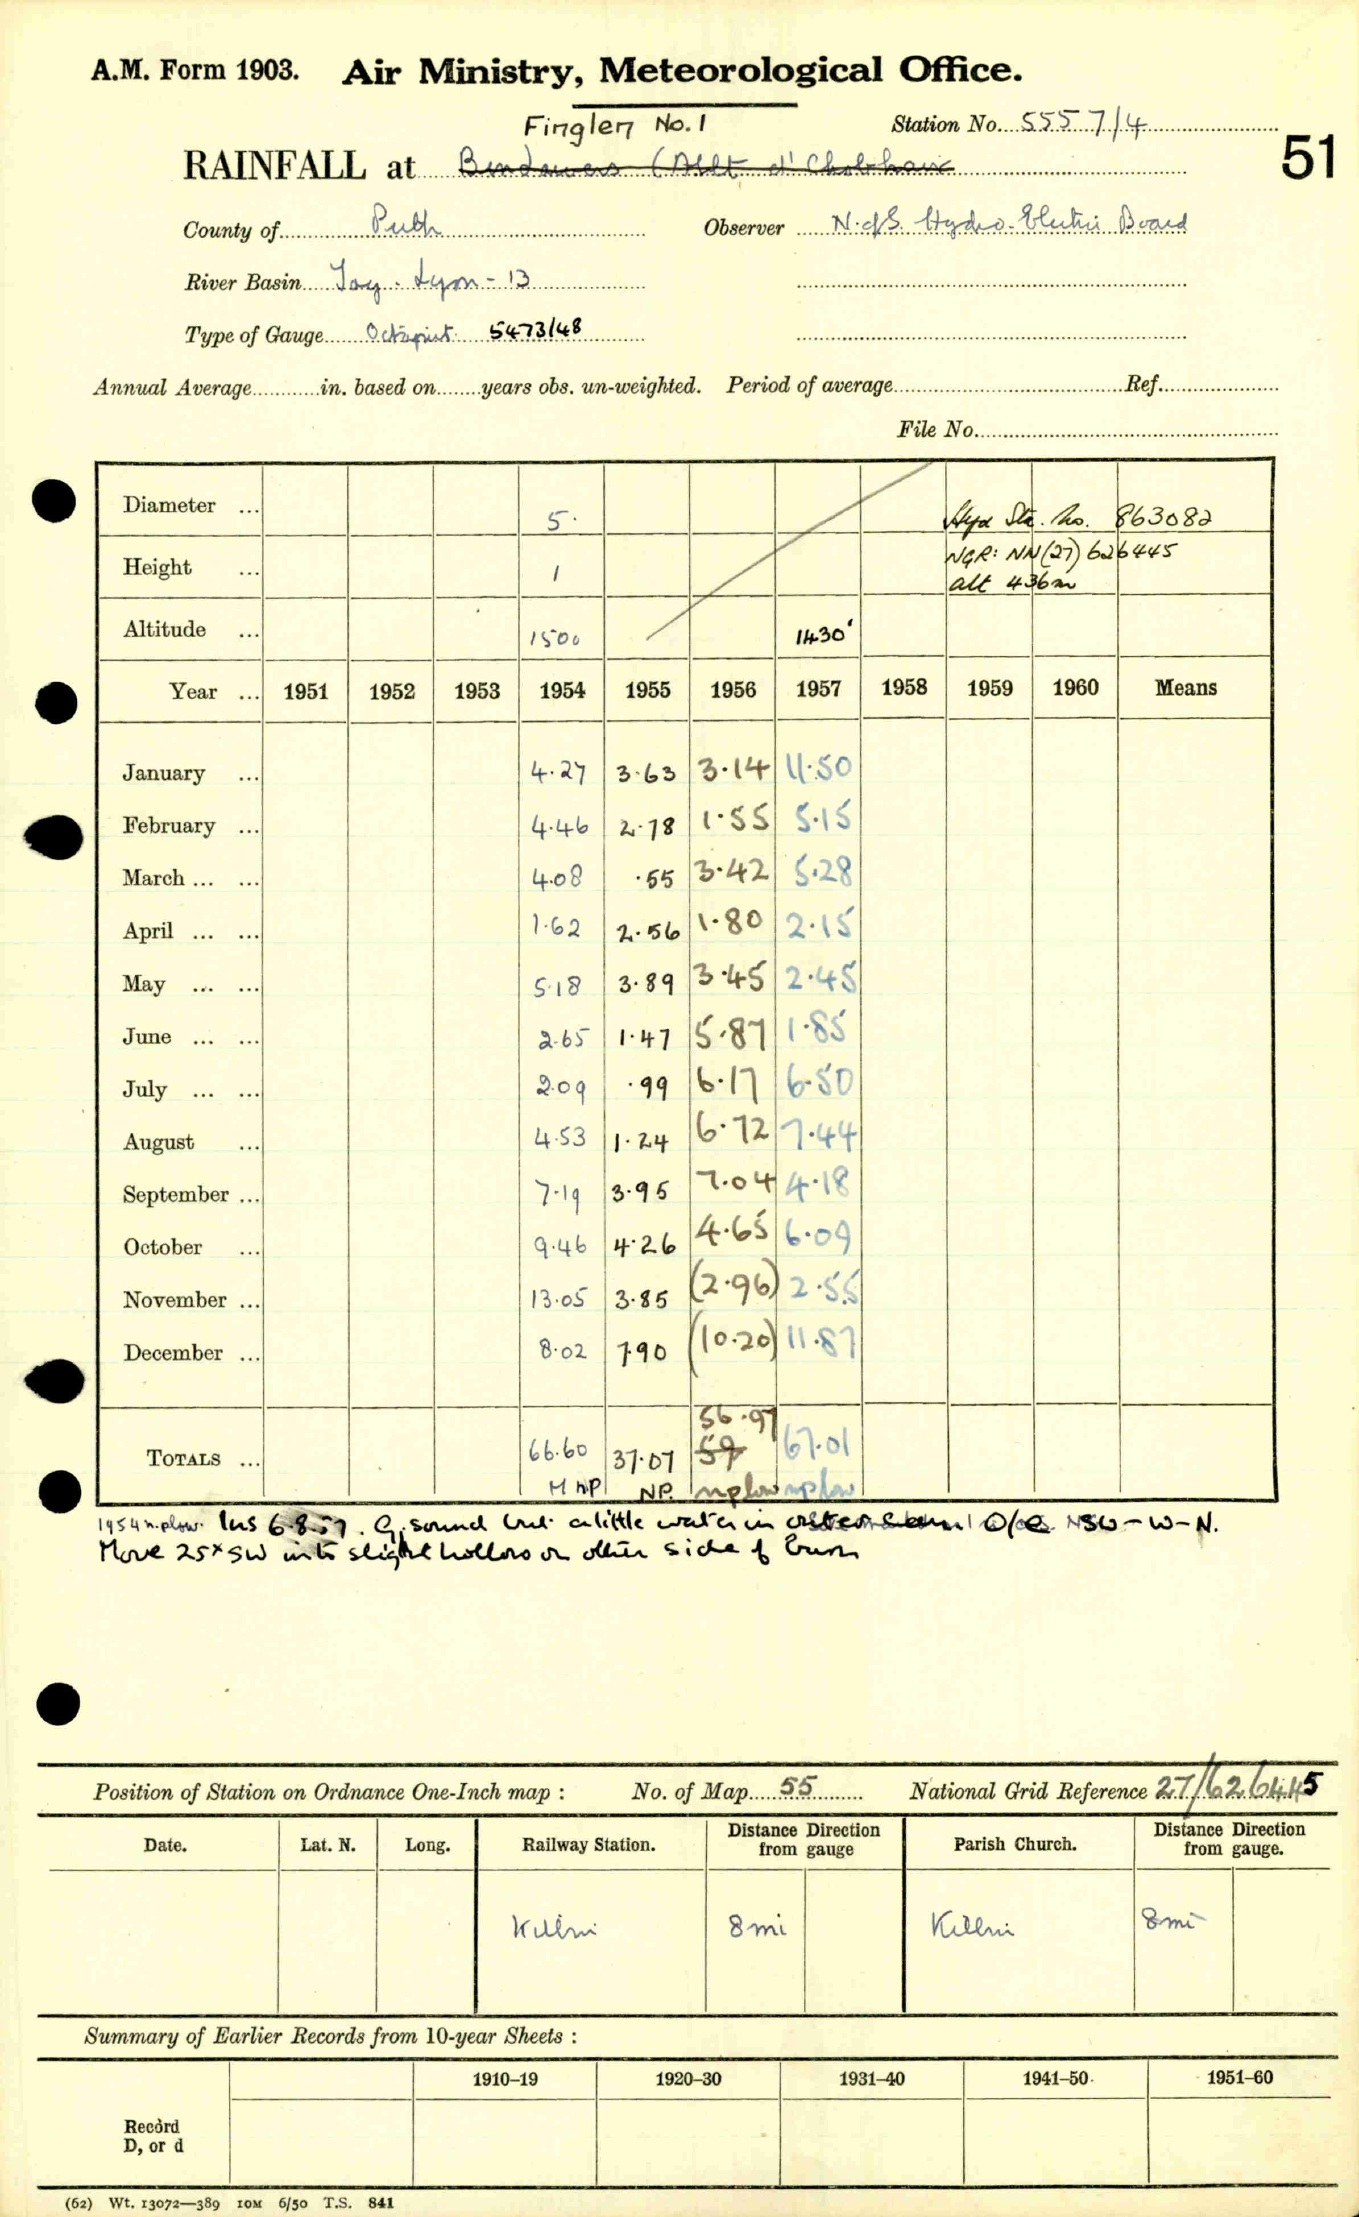 A.M. Form 1903. Air Ministry, Meteorological Office.
Finglen No. 1
Station No. 5557/4
51
RAINFALL at
County of Perth Observer N. of S. Hydro-Electric Board
River Basin Tay - Lyon - 13
Type of Gauge Octapint 5473/48
Annual Average in. based on years obs. un-weighted. Period of average Ref.
File No.
Diameter ... 5. Hyd Stn. No. 863082
Height ... 1 NGR: NN(27) 626445
alt 436m
Altitude ... 1500 1430'
Year ... 1951 1952 1953 1954 1955 1956 1957 1958 1959 1960 Means
January ... 4.27 3.63 3.14 11.50
February ... 4.46 2.78 1.55 5.15
March ... ... 4.08 .55 3.42 5.28
April ... ... 1.62 2.56 1.80 2.15
May ... ... 5.18 3.89 3.45 2.45
June ... ... 2.65 1.47 5.87 1.85
July ... ... 2.09 .99 6.17 6.50
August ... 4.53 1.24 6.72 7.44
September ... 7.19 3.95 7.04 4.18
October ... 9.46 4.26 4.65 6.09
November ... 13.05 3.85 (2.96) 2.55
December ... 8.02 7.90 (10.20) 11.87
56.97
TOTALS ... 66.60 37.07 59 67.01
M NP NP. nplow nplow
1954 n.plow. Ins 6.8.57. G. sound but a little water in outer O/e SW-W-N.
Move 25x SW into slight hollow on other side of burn
Position of Station on Ordnance One-Inch map : No. of Map 55 National Grid Reference 27/626445
Date. Lat. N. Long. Railway Station. Distance from Direction gauge Parish Church. Distance from Direction gauge.
Killin 8 mi Killin 8 mi
Summary of Earlier Records from 10-year Sheets :
1910–19 1920–30 1931–40 1941–50 1951–60
Record
D, or d
(62) Wt. 13072—389 10M 6/50 T.S. 841